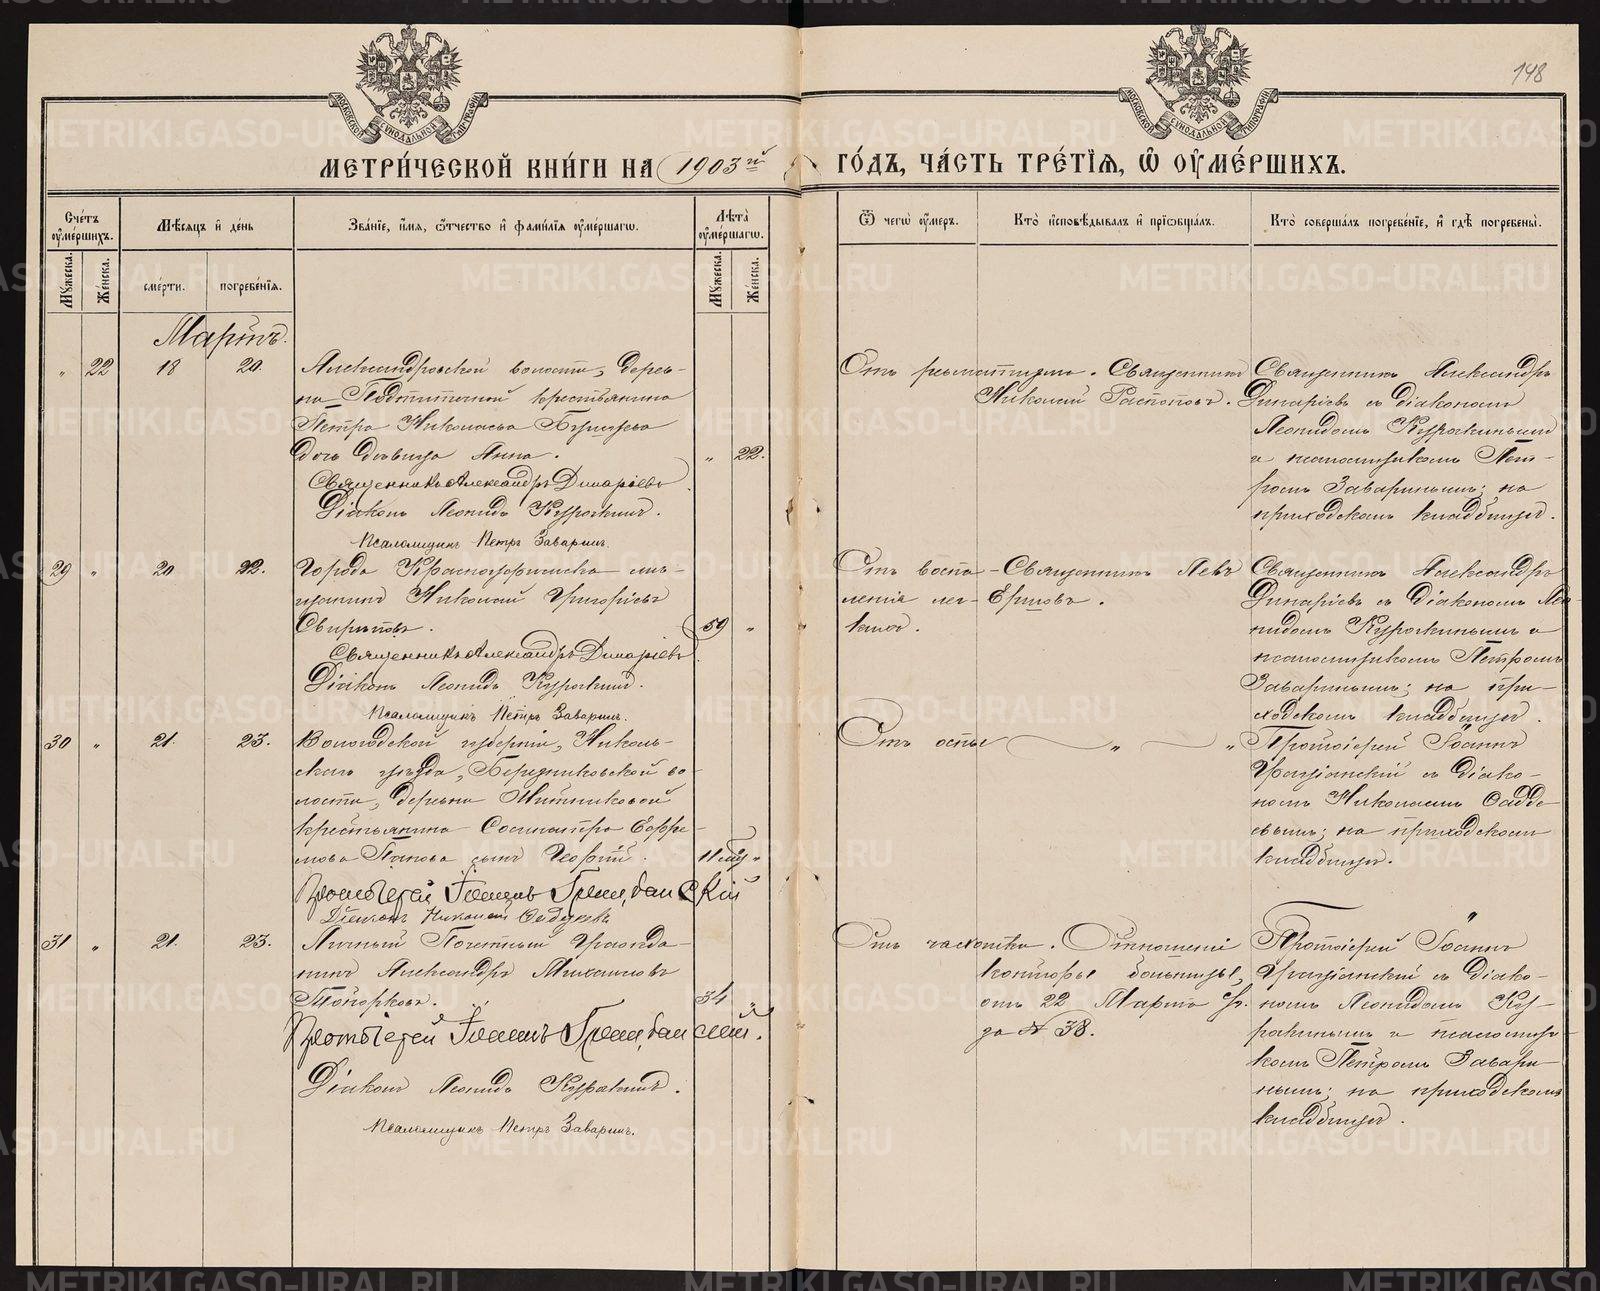 148
МЕТРИ́ЧЕСКОЙ КНИ́ГИ НА 1903й ГО́ДЪ, ЧА́СТЬ ТРЕ́ТІѦ, Ѡ҆ ОУ҆МЕ́РШИХЪ.
Сче́тъ оу҆ме́ршихъ.
Мꙋ́жеска.
Же́нска.
Мѣ́сяцъ и҆ де́нь
сме́рти.
погребе́нїѧ.
Зва́нїе, и҆́мѧ, ѻ҆́тчество и҆ фами́лїѧ оу҆ме́ршагѡ.
Лѣ́та оу҆ме́ршагѡ.
Мꙋ́жеска.
Же́нска.
Ѿ чегѡ̀ оу҆́меръ.
Кто̀ и҆сповѣ́дывалъ и҆ прїѡбща́лъ.
Кто̀ соверша́лъ погребе́нїе, и҆ гдѣ̀ погребены̀.
Мартъ.
" 22 18 20.
Александровской волости, дерев-
ни Подтиничной крестьянина
Петра Николаева
дочь девица Анна. " 22.
Священникъ Александръ Динаріевъ
Діаконъ Леонидъ Куракинъ.
Псаломщикъ Петръ Заваринъ.
Священникъ
Николай Распоповъ.
Священникъ Александръ
Динаріевъ съ діакономъ
Леонидомъ Куракинымъ
и псаломщикомъ Пет-
ромъ Заваринымъ; на
приходскомъ кладбищѣ.
29 " 20 22.
Города Красноуфимска мѣ-
щанинъ Николай Григорьевъ
59 "
Священникъ Александръ Динаріевъ
Діаконъ Леонидъ Куракинъ.
Псаломщикъ Петръ Заваринъ.
Отъ воспа-
ленія лег-
кихъ.
Священникъ Левъ
Ершовъ.
Священникъ Александръ
Динаріевъ съ діакономъ Лео-
нидомъ Куракинымъ и
псаломщикомъ Петромъ
Заваринымъ; на при-
ходскомъ кладбищѣ.
30 " 21. 23.
Вологодской губерніи, Николь-
скаго уѣзда, во-
лости, деревни Житниковой
крестьянина
Попова сынъ Георгій. 11 мѣс "
Протоіерей Іоаннъ
Діаконъ Николай
Отъ оспы " "
Протоіерей Іоаннъ
съ діако-
номъ Николаемъ
на приходскомъ
кладбищѣ.
31 " 21. 23.
Личный Почетный Гражда-
нинъ Александръ Михаиловъ
Топорковъ. 34 "
Протоіерей Іоаннъ
Діаконъ Леонидъ Куракинъ.
Псаломщикъ Петръ Заваринъ.
Отъ чахотки.
Отношеніе
конторы больницы,
отъ 22 Марта с/г.
за № 38.
Протоіерей Іоаннъ
съ діако-
номъ Леонидомъ Ку-
ракинымъ и псаломщи-
комъ Петромъ Завари-
нымъ; на приходскомъ
кладбищѣ.
METRIKI.GASO-URAL.RU